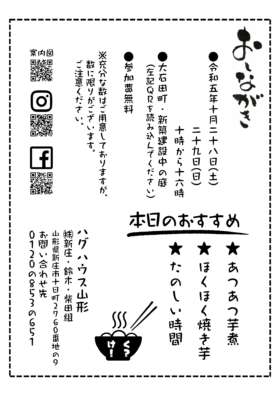 おしながき
●令和五年十月二十八日(土)
二十九日(日)
十時から十六時
●大石田町・新築建設中の庭
(左記QRを読み込んでください)
●参加費無料
※充分な数はご用意しておりますが、
数に限りがございます。
ご注意ください。
案内図
本日のおすすめ
★あつあつ芋煮
★ほくほく焼き芋
★たのしい時間
く?
け!
ハグハウス山形
㈱新庄・鈴木・柴田組
山形県新庄市十日町2760番地の9
お問い合わせ先
0120の853の651